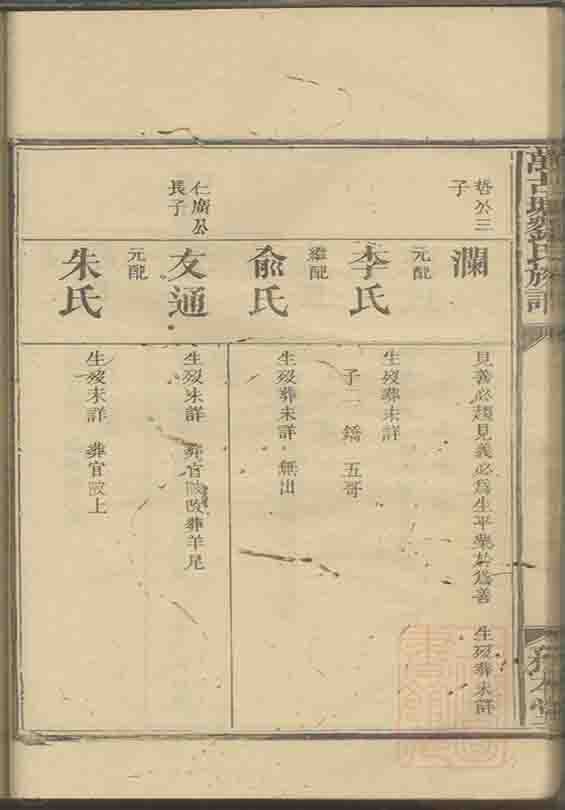 萬古塘劉氏族
哲公三
子
瀾
見善必趨見義必為生平樂於為善 生歿葬未詳
元配
李氏
生歿葬未詳
子二 鏞 五哥
繼配
俞氏
生歿葬未詳 無出
仁廣公
長子
友通
生歿未詳 葬官改葬羊尾
元配
朱氏
生歿未詳 葬官山上